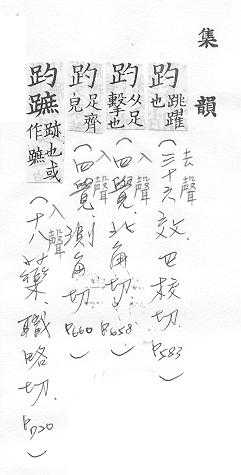 集韻
趵 跳躍也 (去聲 三十六效.巴校切.P583)
趵 以足擊也 (入聲 四覺.北角切.P658)
趵 足齊皃 (入聲 四覺.測角切.P660)
趵蹠 跡也或作蹠 (入聲 十八藥.職略切.P720)